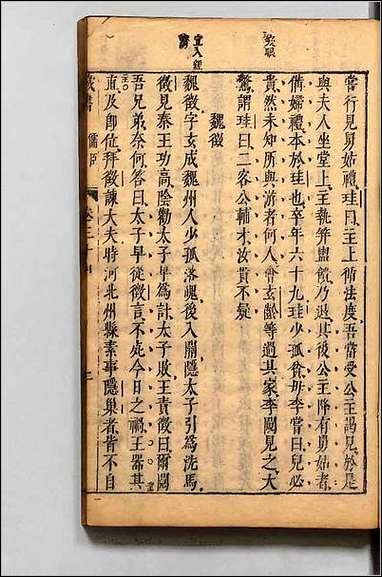 當行見舅姑禮珪曰主上循法度吾當受公主謁見於是
與夫人坐堂上主執笲盥饋乃退其後公主降有舅姑者
備婦禮本於珪也卒年六十九珪少孤貧母李嘗曰兒必
貴然未知所與游者何人會玄齡等過其家李闚見之大
驚謂珪曰二客公輔才汝貴不疑
魏徵
宜入經
魏徵字玄成魏州人少孤落魄後入關隱太子引為洗馬
徵見秦王功高陰勸太子早為計太子敗王責徵曰爾鬩
吾兄弟奈何答曰太子早從徵言不死今日之禍王器其
直及即位拜徵諫大夫時河北州縣素事隱巢者皆不自
藏書 儒臣 卷三十